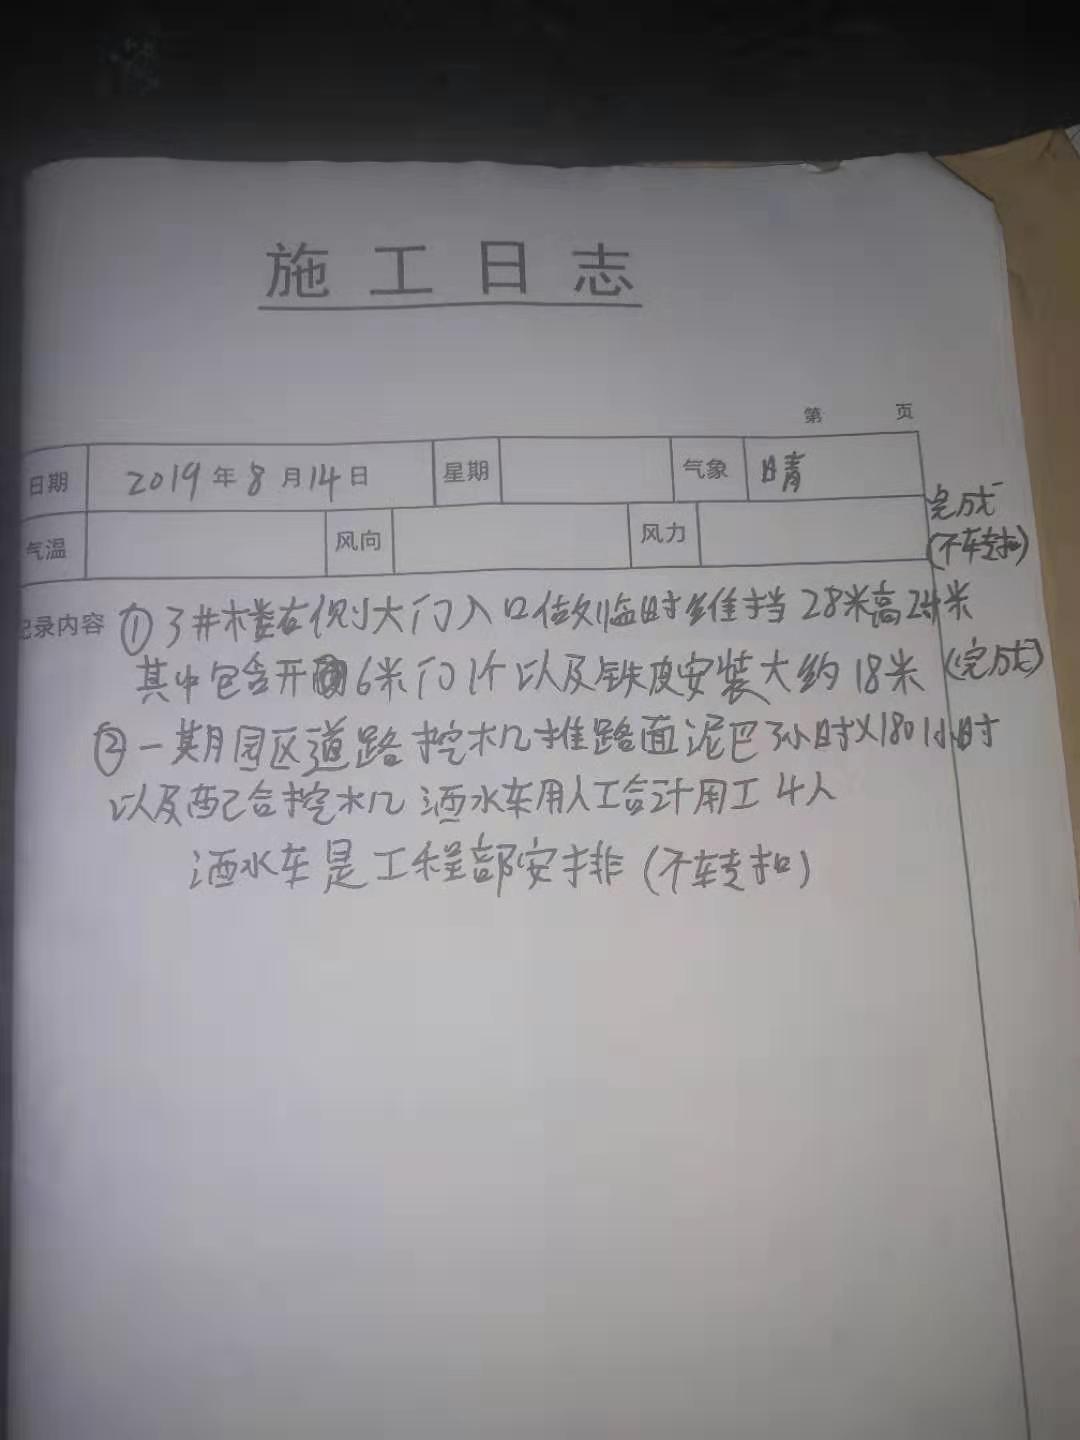 施工日志
第 页
日期 2019年8月14日 星期 气象 晴
气温 风向 风力
完成
(不转扣)
记录内容 ①3#楼右侧大门入口做临时维挡28米高2米
其中包含开6米门1个以及铁皮安装大约18米 (完成)
②一期园区道路挖机推路面泥巴3小时×180/小时
以及配合挖机洒水车用人工合计用工4人
洒水车是工程部安排(不转扣)